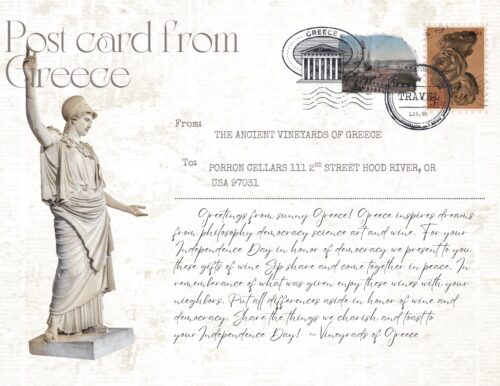 Post card from
Greece
GREECE
TRAVEL
123.90
From:
THE ANCIENT VINEYARDS OF GREECE
To:
PORRON CELLARS 111 2ND STREET HOOD RIVER, OR
USA 97031
Greetings from sunny Greece! Greece inspires dreams
from philosophy democracy science art and wine. For your
Independence Day in honor of democracy we present to you
these gifts of wine Sip share and come together in peace. In
rememberance of what was given enjoy these wines with your
nieghbors. Put all differences aside in honor of wine and
democracy. Share the things we charish and toast to
your Independence Day! ~ Vineyrads of Greece